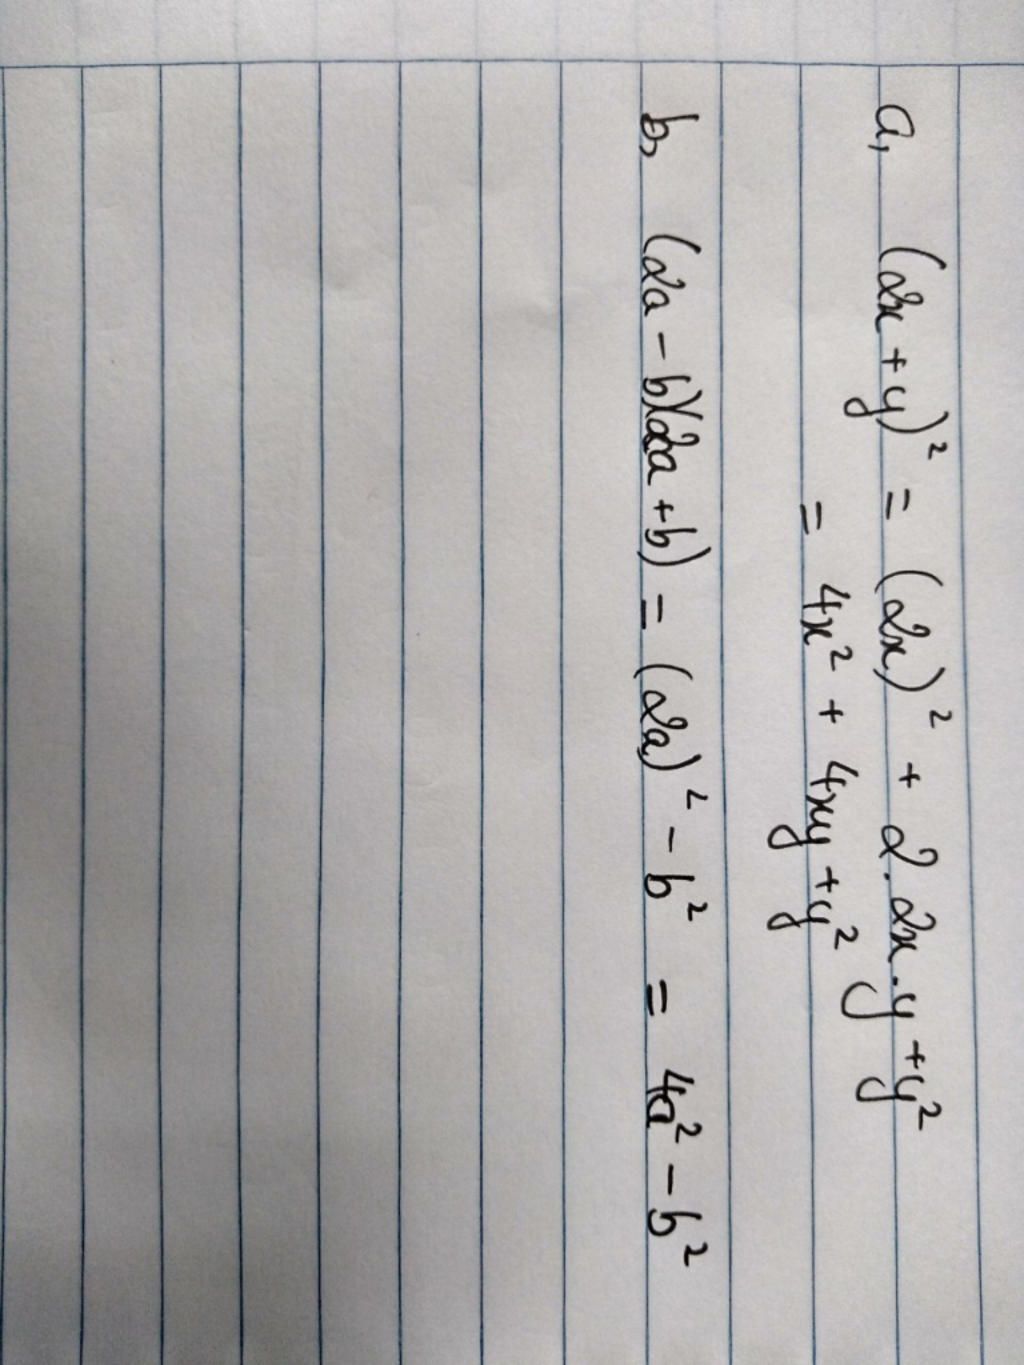 a, (2x + y)² = (2x)² + 2.2x.y + y²
= 4x² + 4xy + y²
b, (2a - b)(2a + b) = (2a)² - b² = 4a² - b²